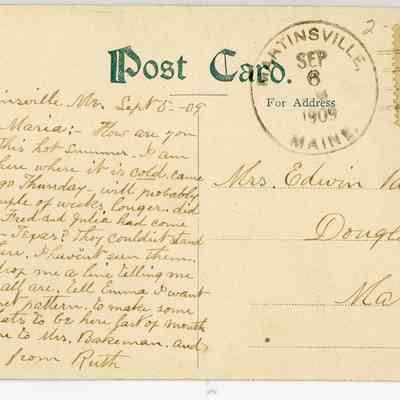 Post Card.
For Address
MARTINSVILLE,
SEP
6
1909
MAINE.
2-
insville Me. Sept 5-09
Maria:- How are you
this hot summer. I am
here where it is cold came
go Thursday - will probably
uple of weeks longer. did
Fred and Julia had come
- Texas? They couldn't stand
here. I haven't seen them.
drop me a line telling me
all are. tell Emma I want
et pattern. to make some
ats to be here last of month
e to Mrs. Bakeman. and
from Ruth
Mrs. Edwin
Dougl
Ma